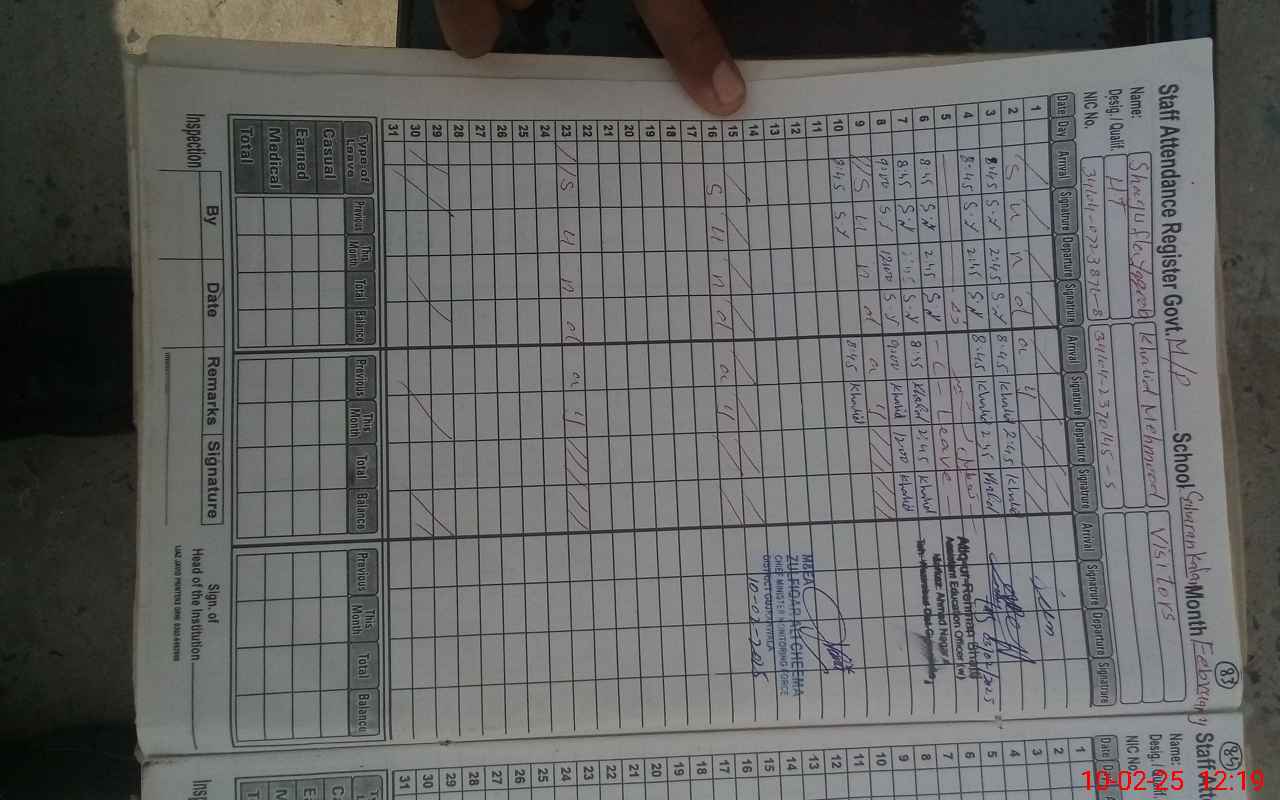 83
Staff Attendance Register Govt. M/P School Month February
Name: Khalid Mehmood Visitors
Desig./ Qualif. HT
NIC No.
Date Day Arrival Signature Departure Signature Arrival Signature Departure Signature Arrival Signature Departure Signature
1
2 S u n d a y
3 8:45 S.Y 2:45 S.Y 8:45 Khalid 2:45 Khalid
4 8:45 S.Y 2:45 S.Y 8:45 Khalid 2:45 Khalid
5
6 8:45 S.Y 2:45 S.Y - C - Leave -
7 8:45 S.Y 2:45 S.Y 8:45 Khalid 2:45 Khalid
8 9:00 S.Y 12:00 S.Y 9:00 Khalid 12:00 Khalid
9 S u n d a y
10 8:45 S.Y 8:45 Khalid
11
12
13
14
15
16 S u n d a y
17
18
19
20
21
22
23 S u n d a y
24
25
26
27
28
29
30
31
Attiqur Rehman Bhatti
Assistant Education Officer (w)
Markaz Ahmad Nagar
M&EA
ZULFIQAR ALI CHEEMA
CHIEF MINISTER MONITORING FORCE
DISTRICT GUJRANWALA
10-02-2025
Type of Leave Previous This Month Total Balance Previous This Month Total Balance Previous This Month Total Balance
Casual
Earned
Medical
Total
Inspection By Date Remarks Signature
Sign. of
Head of the Institution
84
Staff Att
Name:
Desig. / Qualif.
NIC No.
Date Day
1
2
3
4
5
6
7
8
9
10
11
12
13
14
15
16
17
18
19
20
21
22
23
24
25
26
27
28
29
30
31
10-02-25 12:19